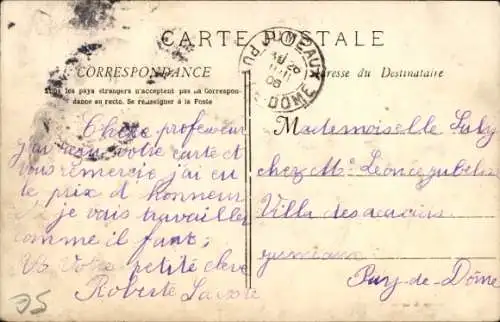 CARTE POSTALE
CORRESPONDANCE
Tous les pays étrangers n'acceptent pas la Correspon-
dance au recto. Se renseigner à la Poste
Adresse du Destinataire
JUMEAUX
PUY DE DOME
Chère professeur
j'ai reçu votre carte et
vous remercie j'ai eu
le prix d'honneur
je vais travailler
comme il faut
Votre petite élève
Roberte
Mademoiselle
chez Mr Léonce
Villa des acacias
Jumeaux
Puy-de-Dôme